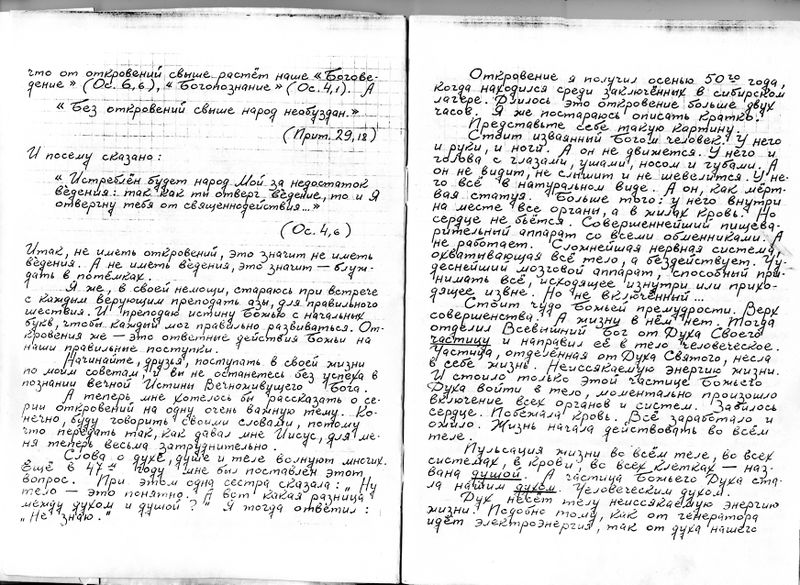 что от откровений свыше растёт наше «Богове-
дение» (Ос. 6,6), «Богопознание» (Ос. 4,1). А
«Без откровений свыше народ необуздан.»
(Прит. 29,18)
И посему сказано:
«Истреблён будет народ Мой за недостаток
вéдения: так как ты отверг вéдение, то и Я
отвергну тебя от священнодействия...»
(Ос. 4,6)
Итак, не иметь откровений, это значит не иметь
вéдения. А не иметь вéдения, это значит — блуж-
дать в потёмках.
Я же, в своей немощи, стараюсь при встрече
с каждым верующим преподать азы, для правильного
шествия. И преподаю истину Божью с начальных
букв, чтобы каждый мог правильно развиваться. От-
кровения же — это ответные действия Божьи на
наши правильные поступки.
Начинайте, друзья, поступать в своей жизни
по моим советам, и вы не останетесь без успеха в
познании вечной Истины Вечноживущего Бога.
А теперь мне хотелось бы рассказать о се-
рии откровений на одну очень важную тему. Ко-
нечно, буду говорить своими словами, потому
что передать так, как давал мне Иисус, для ме-
ня теперь весьма затруднительно.
Слова о духе, душе и теле волнуют многих.
Ещё в 47ом году мне был поставлен этот
вопрос. При этом одна сестра сказала: „Ну
тело — это понятно. А вот какая разница
между духом и душой?" Я тогда ответил:
„Не знаю."
Откровение я получил осенью 50го года,
когда находился среди заключённых в сибирском
лагере. Длилось это откровение больше двух
часов. Я же постараюсь описать кратко.
Представьте себе такую картину:
Стоит изваянный Богом человек. У него
и руки, и ноги. А он не движется. У него и
голова с глазами, ушами, носом и губами. А
он не видит, не слышит и не шевелится. У не-
го всё в натуральном виде. А он, как мёрт-
вая статуя. Больше того: у него внутри
на месте все органы, а в жилах кровь. Но
сердце не бьётся. Совершеннейший пищева-
рительный аппарат со всеми обменниками. А
не работает. Сложнейшая нервная система,
охватывающая всё тело, а бездействует. Чу-
деснейший мозговой аппарат, способный при-
нимать всё, исходящее изнутри или прихо-
дящее извне. Но не включённый...
Стоит чудо Божьей премудрости. Верх
совершенства. А жизни в нём нет. Тогда
отделил Всевышний Бог от Духа Своего
частицу и направил её в тело человеческое.
Частица, отделённая от Духа Святого, несла
в себе жизнь. Неиссякаемую энергию жизни.
И стоило только этой частице Божьего
Духа войти в тело, моментально произошло
включение всех органов и систем. Забилось
сердце. Побежала кровь. Всё заработало и
ожило. Жизнь начала действовать во всём
теле.
Пульсация жизни во всём теле, во всех
системах, в крови, во всех клетках — наз-
вана душой. А частица Божьего Духа ста-
ла нашим духом. Человеческим духом.
Дух несёт телу неиссякаемую энергию
жизни. Подобно тому, как от генератора
идёт электроэнергия, так от духа нашего